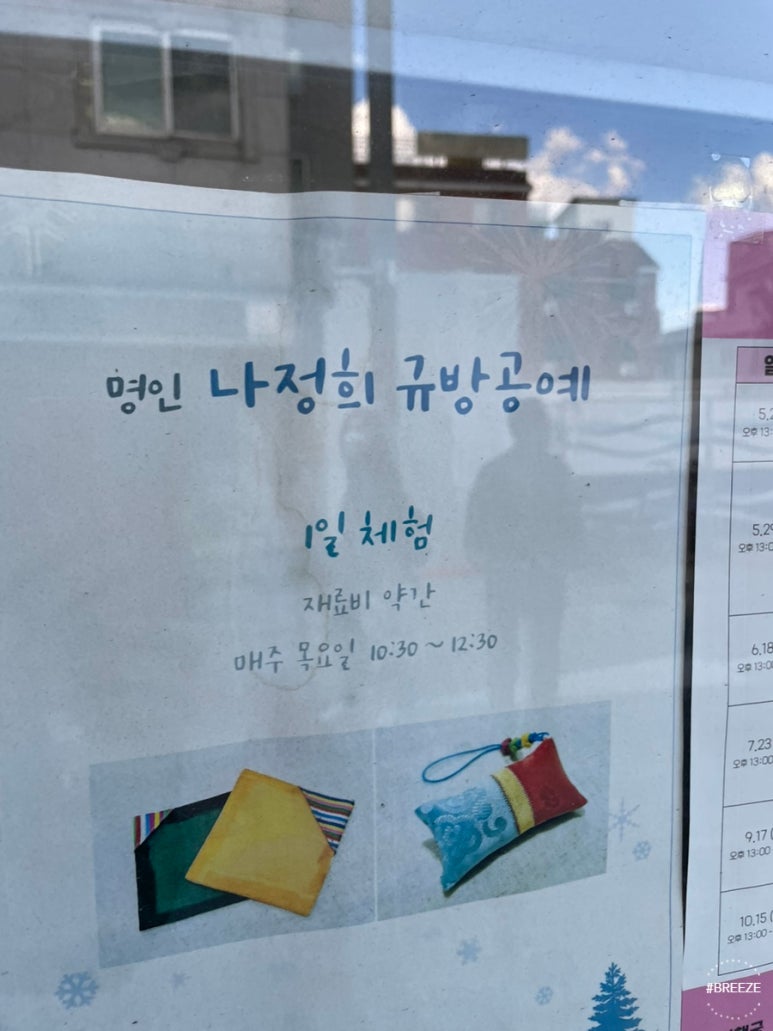 명인 나정희 규방공예
1일 체험
재료비 약간
매주 목요일 10:30 ~ 12:30
5.2
오후 13:
5.29
오후 13:0
6.18
오후 13:00
7.23
오후 13:00
9.17 (
오후 13:00
10.15 (
오후 13:00 -
#BREEZE